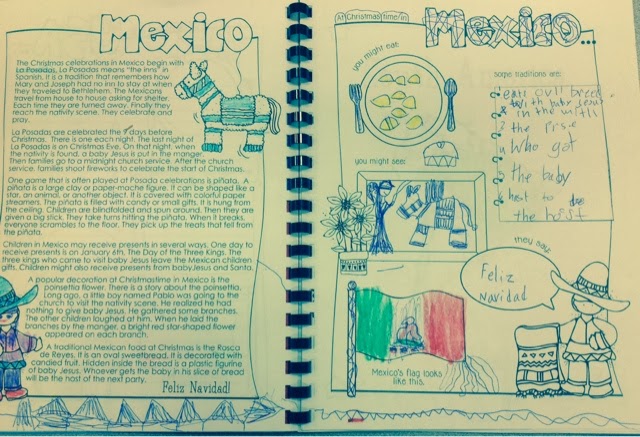 Mexico
The Christmas celebrations in Mexico begin with
La Posadas. La Posadas means "the inns" in
Spanish. It is a tradition that remembers how
Mary and Joseph had no inn to stay at when
they traveled to Bethlehem. The Mexicans
travel from house to house asking for shelter.
Each time they are turned away. Finally they
reach the nativity scene. They celebrate and
pray.
La Posadas are celebrated the 9 days before
Christmas. There is one each night. The last night of
La Posadas is on Christmas Eve. On that night, when
the nativity is found, a baby Jesus is put in the manger.
Then families go to a midnight church service. After the church
service, families shoot fireworks to celebrate the start of Christmas.
One game that is often played at Posada celebrations is piñata. A
piñata is a large clay or paper-mache figure. It can be shaped like a
star, an animal, or another object. It is covered with colorful paper
streamers. The piñata is filled with candy or small gifts. It is hung from
the ceiling. Children are blindfolded and spun around. Then they are
given a big stick. They take turns hitting the piñata. When it breaks,
everyone scrambles to the floor. They pick up the treats that fell from
the piñata.
Children in Mexico may receive presents in several ways. One day to
receive presents is on January 6th, The Day of the Three Kings. The
three kings who came to visit baby Jesus leave the Mexican children
gifts. Children might also receive presents from baby Jesus and Santa.
A popular decoration at Christmastime in Mexico is the
poinsettia flower. There is a story about the poinsettia.
Long ago, a little boy named Pablo was going to the
church to visit the nativity scene. He realized he had
nothing to give baby Jesus. He gathered some branches.
The other children laughed at him. When he laid the
branches by the manger, a bright red star-shaped flower
appeared on each branch.
A traditional Mexican food at Christmas is the Rosca
de Reyes. It is an oval sweetbread. It is decorated with
candied fruit. Hidden inside the bread is a plastic figurine
of baby Jesus. Whoever gets the baby in his slice of bread
will be the host of the next party.
Feliz Navidad!
At Christmas time in
Mexico...
you might eat:
some traditions are:
breed
with baby
in the
the
Who got
the baby
the
you might see:
they say:
Feliz
Navidad
Mexico's flag looks
like this.